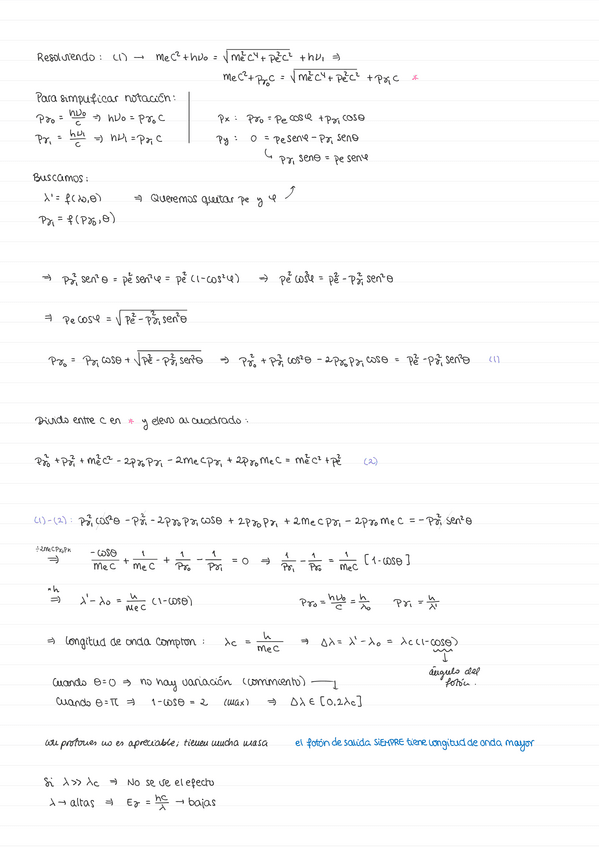 Resolviendo: (1) → mec² + hν₀ = √(me²c⁴ + pe²c²) + hν₁ ⇒
mec² + pγ₀c = √(me²c⁴ + pe²c²) + pγ₁c *
Para simplificar notación:
pγ₀ = hν₀/c ⇒ hν₀ = pγ₀c
pγ₁ = hν₁/c ⇒ hν₁ = pγ₁c
px: pγ₀ = pe cosφ + pγ₁ cosθ
py: 0 = pe senφ - pγ₁ senθ
↳ pγ₁ senθ = pe senφ
Buscamos:
λ' = f(λ₀,θ) ⇒ Queremos quitar pe y φ
pγ₁ = f(pγ₀,θ)
⇒ pγ₁² sen²θ = pe² sen²φ = pe² (1-cos²φ) → pe² cos²φ = pe² - pγ₁² sen²θ
⇒ pe cosφ = √(pe² - pγ₁² sen²θ)
pγ₀ = pγ₁ cosθ + √(pe² - pγ₁² sen²θ) ⇒ pγ₀² + pγ₁² cos²θ - 2pγ₀pγ₁ cosθ = pe² - pγ₁² sen²θ (1)
Divido entre c en * y elevo al cuadrado:
pγ₀² + pγ₁² + me²c² - 2pγ₀pγ₁ - 2mecpγ₁ + 2pγ₀mec = me²c² + pe² (2)
(1)-(2): pγ₁² cos²θ - pγ₁² - 2pγ₀pγ₁ cosθ + 2pγ₀pγ₁ + 2mecpγ₁ - 2pγ₀mec = - pγ₁² sen²θ
÷2mecpγ₀pγ₁ ⇒ -cosθ/mec + 1/mec + 1/pγ₀ - 1/pγ₁ = 0 ⇒ 1/pγ₁ - 1/pγ₀ = 1/mec [1-cosθ]
·h ⇒ λ' - λ₀ = h/mec (1-cosθ) pγ₀ = hν₀/c = h/λ₀ pγ₁ = h/λ'
⇒ longitud de onda Compton: λc = h/mec ⇒ Δλ = λ' - λ₀ = λc(1-cosθ)
ángulo del
fotón.
Cuando θ=0 ⇒ no hay variación
Cuando θ=π ⇒ 1-cosθ = 2 (max) ⇒ Δλ ∈ [0,2λc]
con protones no es apreciable; tienen mucha masa el fotón de salida SIEMPRE tiene longitud de onda mayor
Si λ >> λc ⇒ No se ve el efecto
λ → altas ⇒ Eγ = hc/λ → bajas